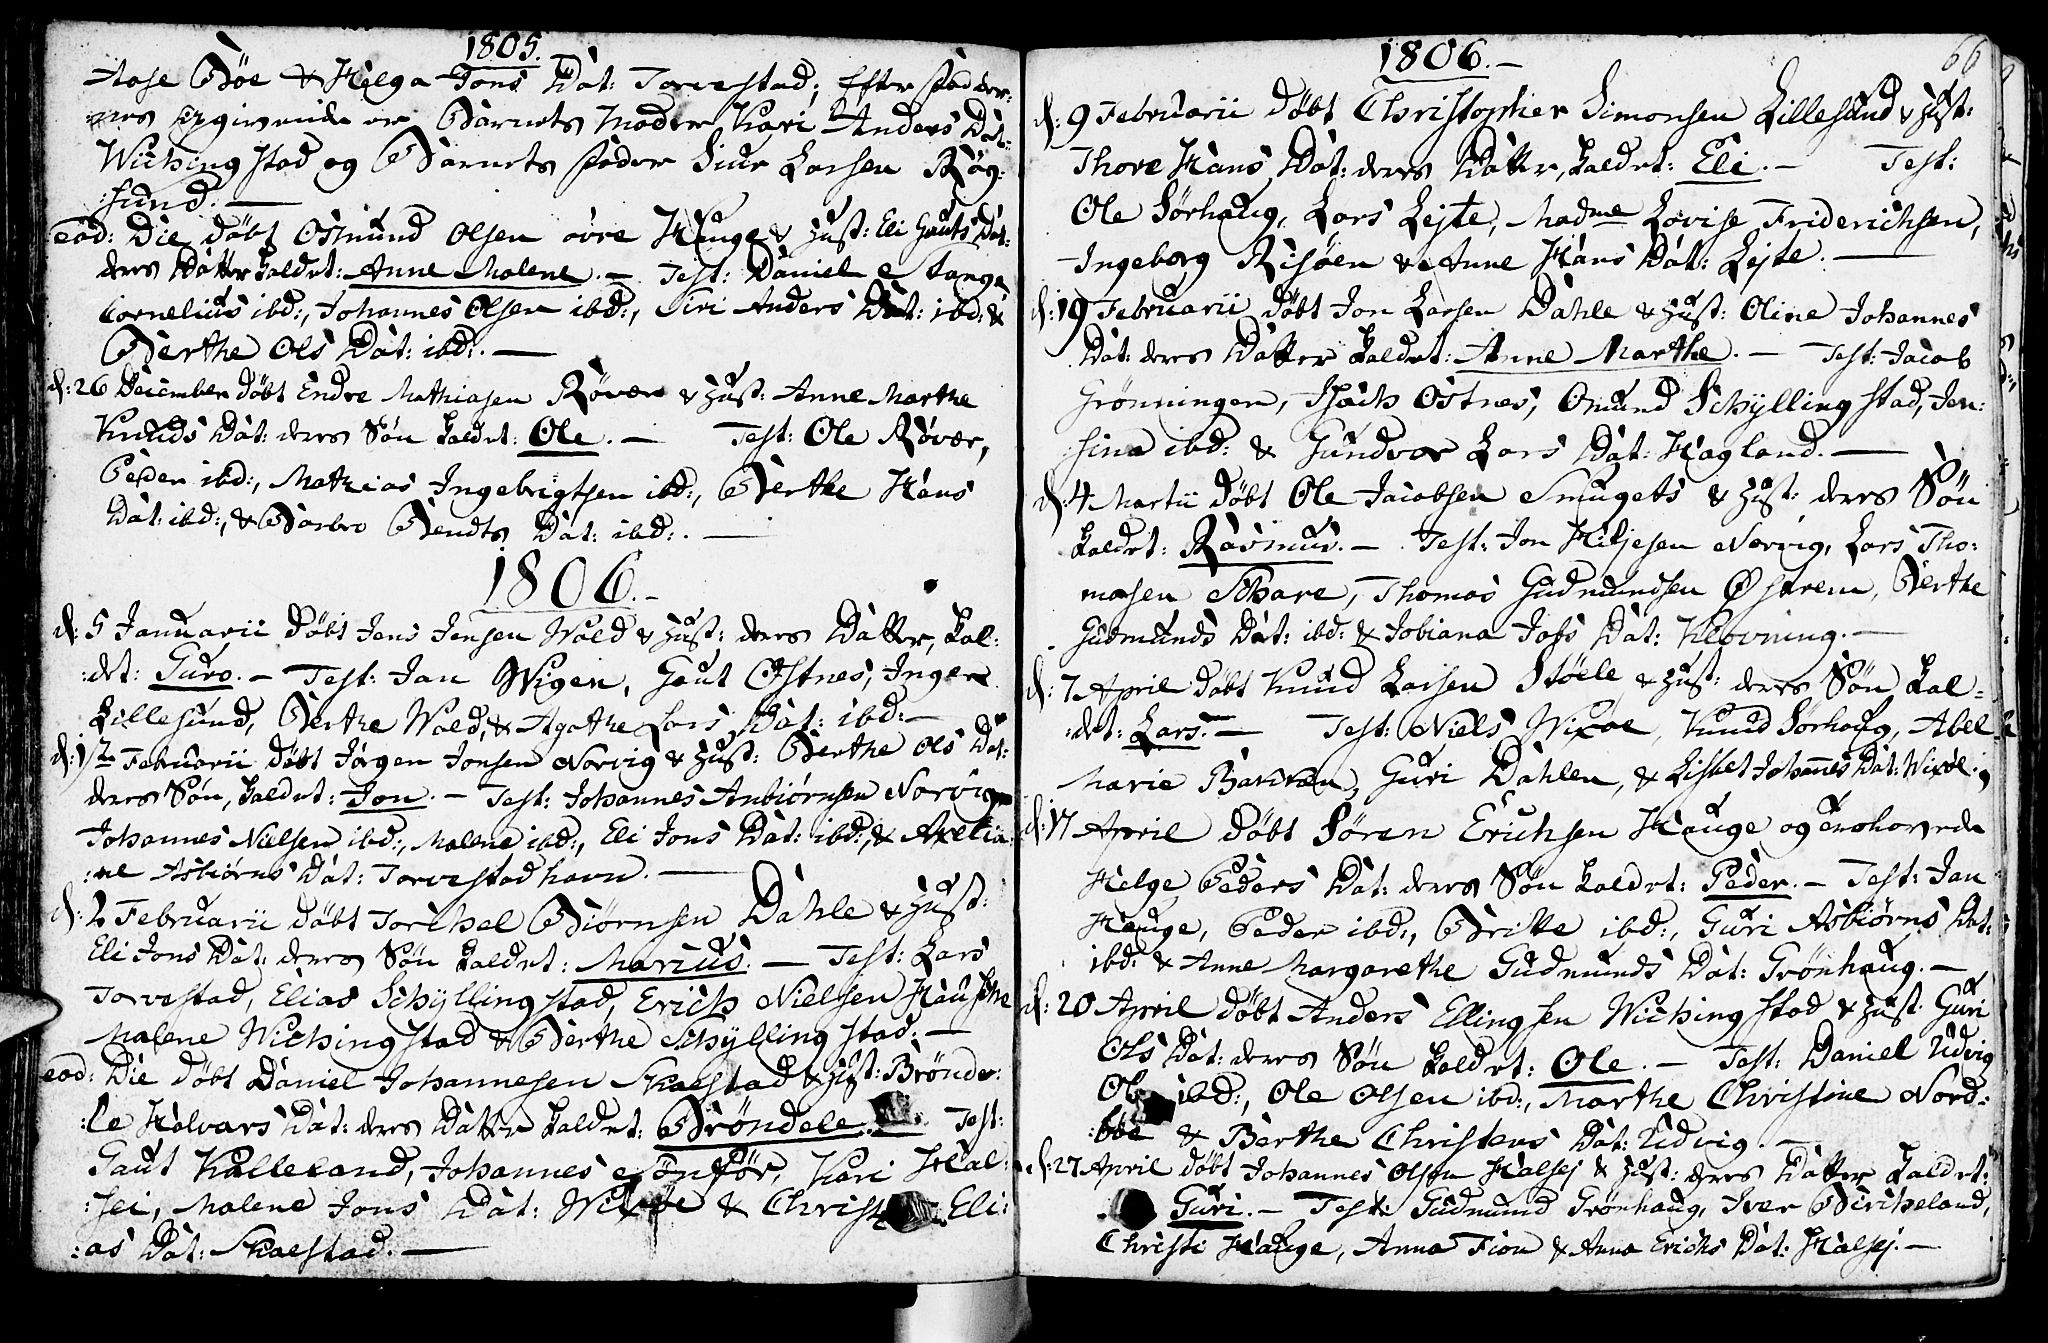 1805.
Aase Böe & Helga Jons Dat: Torvestad; Efter Fadder:
nes Udgivende er Barnets Moder Kari Anders Dat:
Wichingstad og Barnets Fader Siur Larsen Rög:
:sund. —
eod: Die döbt Osmund Olsen övre Hauge & Hust: Eli Gauts Dat:
deres Datter kaldet: Anne Malene. — Test: Daniel Tange
Cornelius ibd:, Johannes Olsen ibd:, Siri Anders Dat: ibd: &
Berthe Ols Dat: ibd:. —
d: 26 December döbt Endre Mathiasen Rövær & Hust: Anne Marthe
Knuds Dat: deres Sön kaldet: Ole. — Test: Ole Rövær,
Peder ibd:, Mathias Ingebrigtsen ibd:, Berthe Hans
Dat: ibd:, & Barbro Bendts Dat: ibd:. —
1806. -
d: 5 Januarii döbt Jens Jensen Wald & Hust: deres Datter, kal:
:det: Guro. — Test: Jan Wigen, Gaut Östnes, Inger
Lillesund, Berthe Wald, & Agathe Lars Dat: ibd: —
d: Februarii döbt Jörgen Jonsen Norvig & Hust: Berthe Ols Dat:
deres Sön, kaldet: Jon. — Test: Johannes Anbiörnsen Norvig
Johannes Nielsen ibd:, Malene ibd:, Eli Jons Dat: ibd:, & Axelia:
:ne Asbiörns Dat: Torvestadhavn. —
d: 2 Februarii döbt Torchel Biörnsen Dahle & Hust:
Eli Jons Dat: deres Sön kaldet: Marius. — Test: Lars
Torvestad, Elias Schyllingstad, Erich Nielsen Hausche
Malene Wichingstad & Berthe Schyllingstad. —
eod: Die döbt Daniel Johannesen Skaestad & Hust: Brönde:
:le Halvars Dat: deres Datter kaldet: Bröndele. — Test:
Gaut Kalleland, Johannes Sönför, Kari Hal:
:sei, Malene Jons Dat: & Christ Eli:
:as Dat: Skaestad. —
1806. -
66
d: 9 Februarii döbt Christopher Simonsen Lillesund & Hust:
Thore Hans Dat: deres Datter, kaldet: Eli. — Test:
Ole Sörhaug, Lars Lejte, Madme Lovise Friderichsen,
Ingeborg Risöen & Anne Hans Dat: Lejte. —
d: 19 Februarii döbt Jon Larsen Dahle & Hust: Oline Johannes
Dat: deres Datter kaldet: Anne Marthe. — Test: Jacob
Grönningen, Isach Östnes, Omund Schyllingstad, Jen:
:sina ibd: & Gundvor Lars Dat: Hagland. —
d: 4 Martii döbt Ole Jacobsen Smugets & Hust: deres Sön
kaldet: Rasmus. — Test: Jon Hiljesen Norvig, Lars Tho:
masen Schare, Thomas Gudmundsen Østrem, Berthe
Gudmunds Dat: ibd: & Jobiana Jofs Dat: Klovning. —
d: 7 April döbt Knud Larsen Stöele & Hust: deres Sön kal:
:det: Lars. — Test: Niels Wixöe, Knud Sörhaug, Abel
Marie Banivan, Guri Dahlen, & Lisbet Johannes Dat: Wixöe.
d: 17 April döbt Sören Erichsen Hauge og Troloverde
Helge Peders Dat: deres Sön kaldet: Peder. — Test: Jan
Hauge, Peder ibd:, Britte ibd:, Guri Asbiörns Dat:
ibd: & Anne Margarethe Gudmunds Dat: Grönhaug. —
d: 20 April döbt Anders Ellingsen Wichingstad & Hust: Guri
Ols Dat: deres Sön kaldet: Ole. — Test: Daniel Udvig
Ole ibd:, Ole Olsen ibd:, Marthe Christine Nord:
:böe & Berthe Christens Dat: Udvig. —
d: 27 April döbt Johannes Olsen Halsej & Hust: deres Datter kaldet:
Guri. — Test: Gudmund Grönhaug, Iver Bircheland,
Christi Hauge, Anna Fion & Anna Erichs Dat: Halsej. —